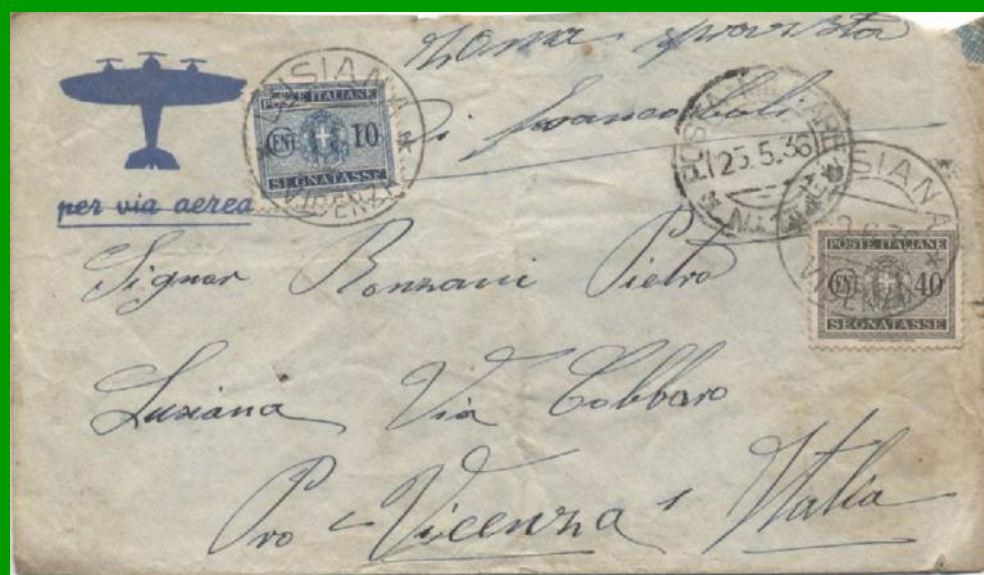 Zona sprovvista
di francobolli
per via aerea
LUSIANA
VICENZA
POSTE ITALIANE
CENT 10
SEGNATASSE
POSTA MILITARE
25.5.36
LUSIANA
VICENZA
POSTE ITALIANE
CENT 40
SEGNATASSE
Signor Ronzani Pietro
Lusiana Via Cobbaro
Pro Vicenza Italia